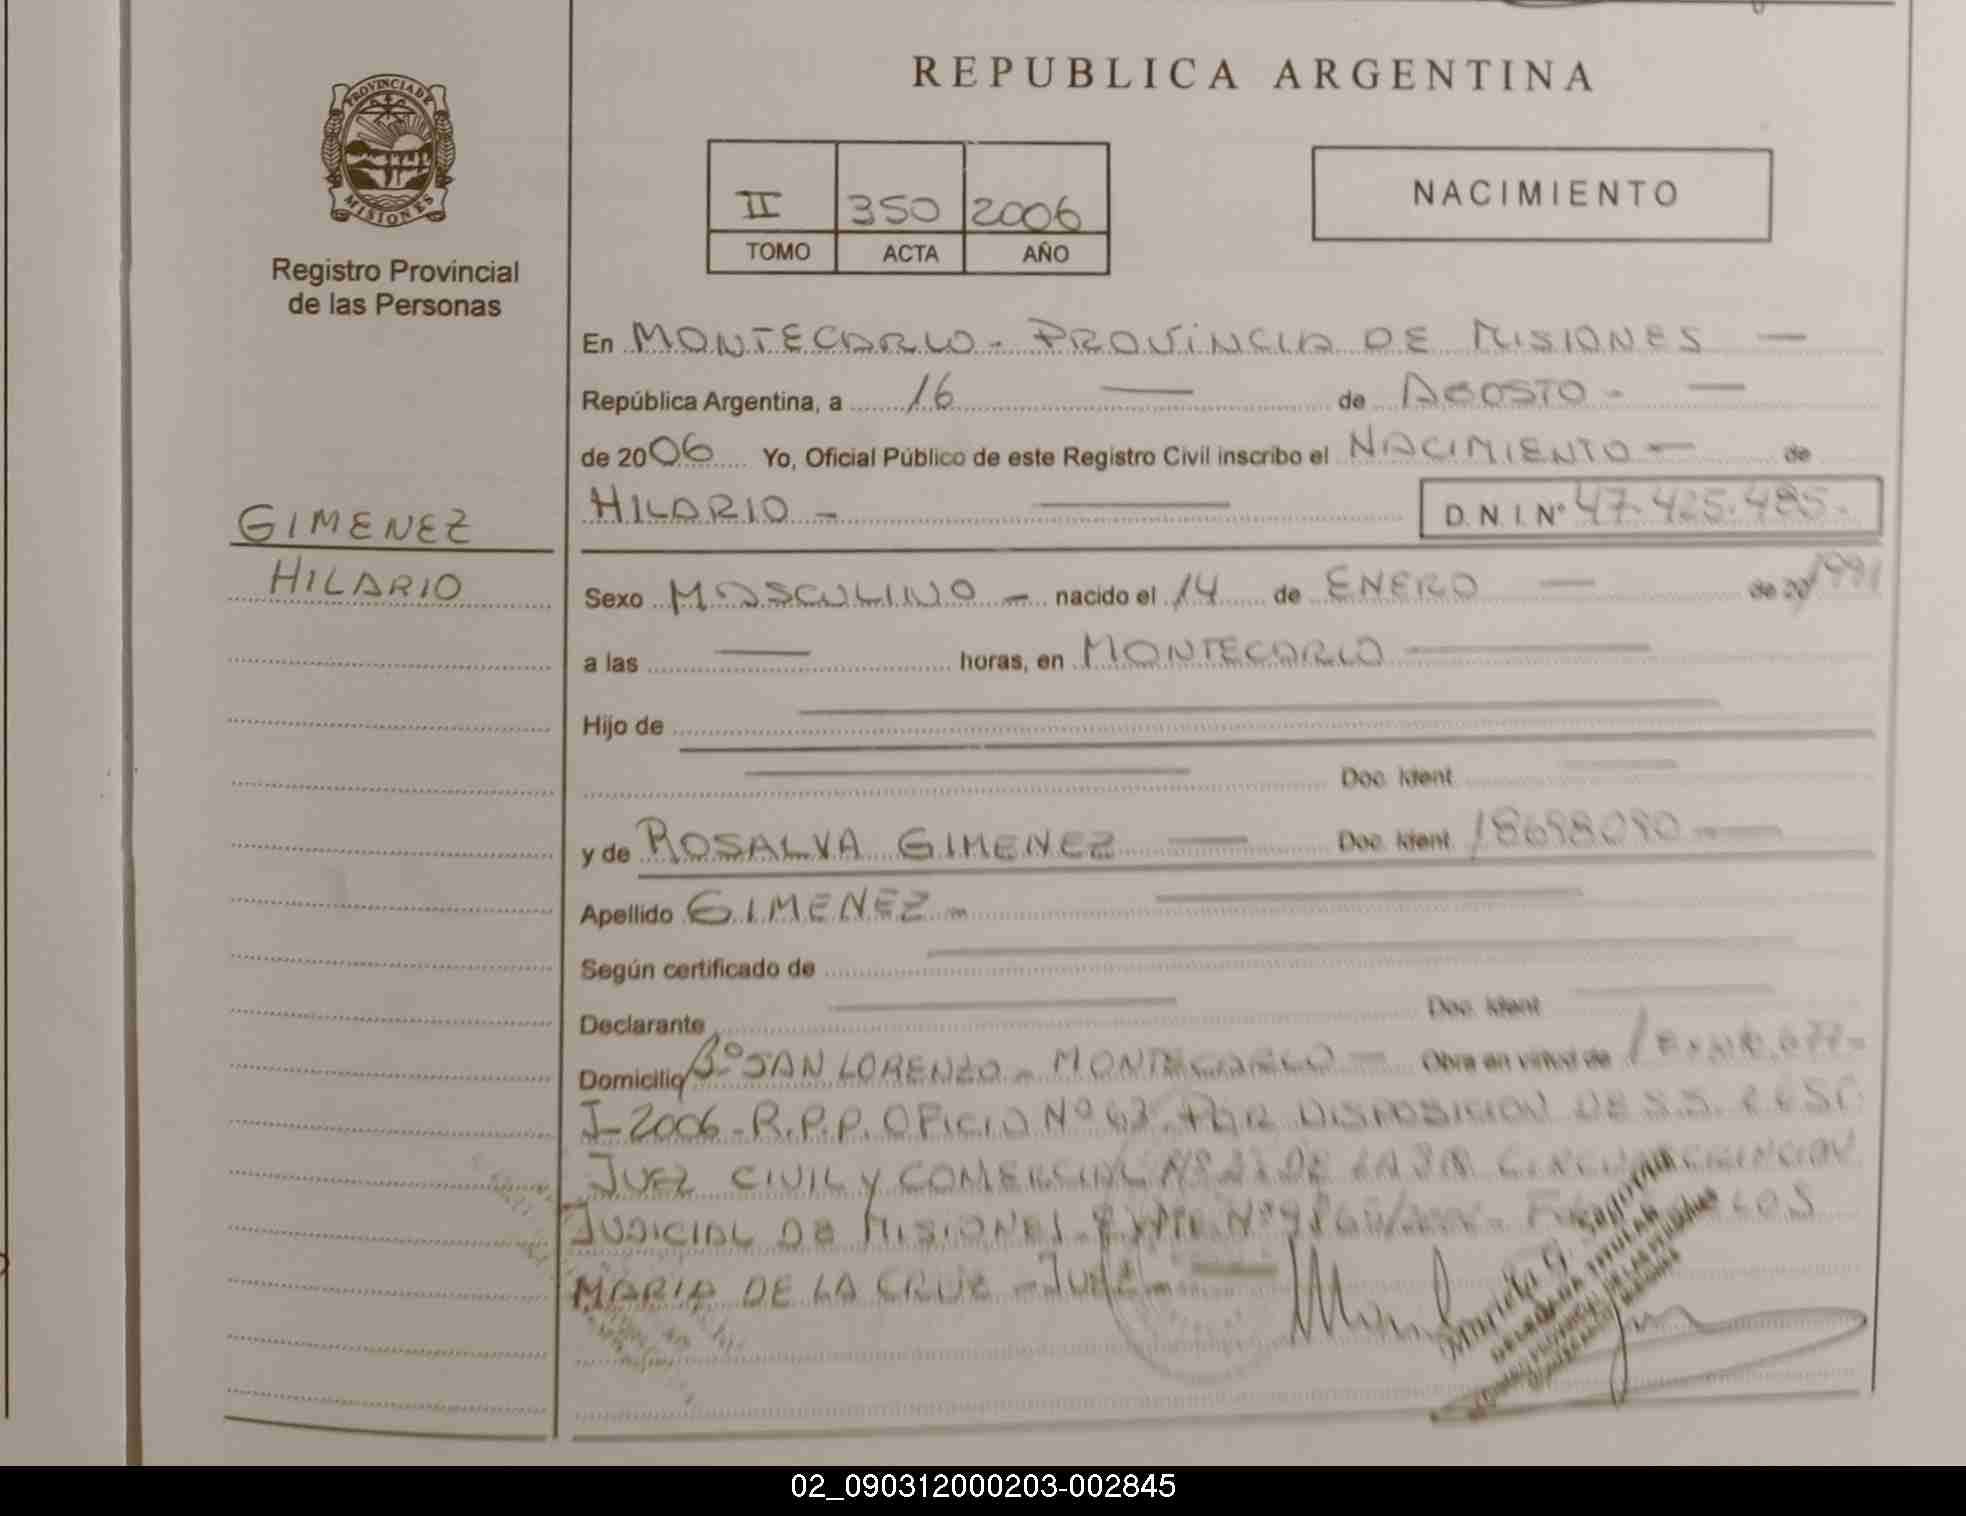 REPUBLICA ARGENTINA
PROVINCIA DE
MISIONES
Registro Provincial
de las Personas
II 350 2006
TOMO ACTA AÑO
NACIMIENTO
En MONTECARLO - PROVINCIA DE MISIONES —
República Argentina, a 16 — de AGOSTO - —
de 2006 Yo, Oficial Público de este Registro Civil inscribo el NACIMIENTO — de
HILARIO - — D.N.I. Nº 47.425.485.
GIMENEZ
HILARIO
Sexo MASCULINO - nacido el 14 de ENERO — de 20 1991
a las — horas, en MONTECARLO —
Hijo de —
— Doc. Ident. —
y de ROSALVA GIMENEZ — Doc. Ident. 18698090 —
Apellido GIMENEZ - —
Según certificado de —
Declarante — Doc. Ident. —
Domicilio Bº SAN LORENZO - MONTECARLO — Obra en virtud de
I-2006 - R.P.P. OFICIO Nº 63. POR DISPOSICION DE S.S.
JUEZ CIVIL Y COMERCIAL Nº DE LA CIRCUNSCRIPCION
JUDICIAL DE MISIONES - EXPTE Nº
MARIA DE LA CRUZ - JUEZ - —
DELEGADA TITULAR
02_090312000203-002845